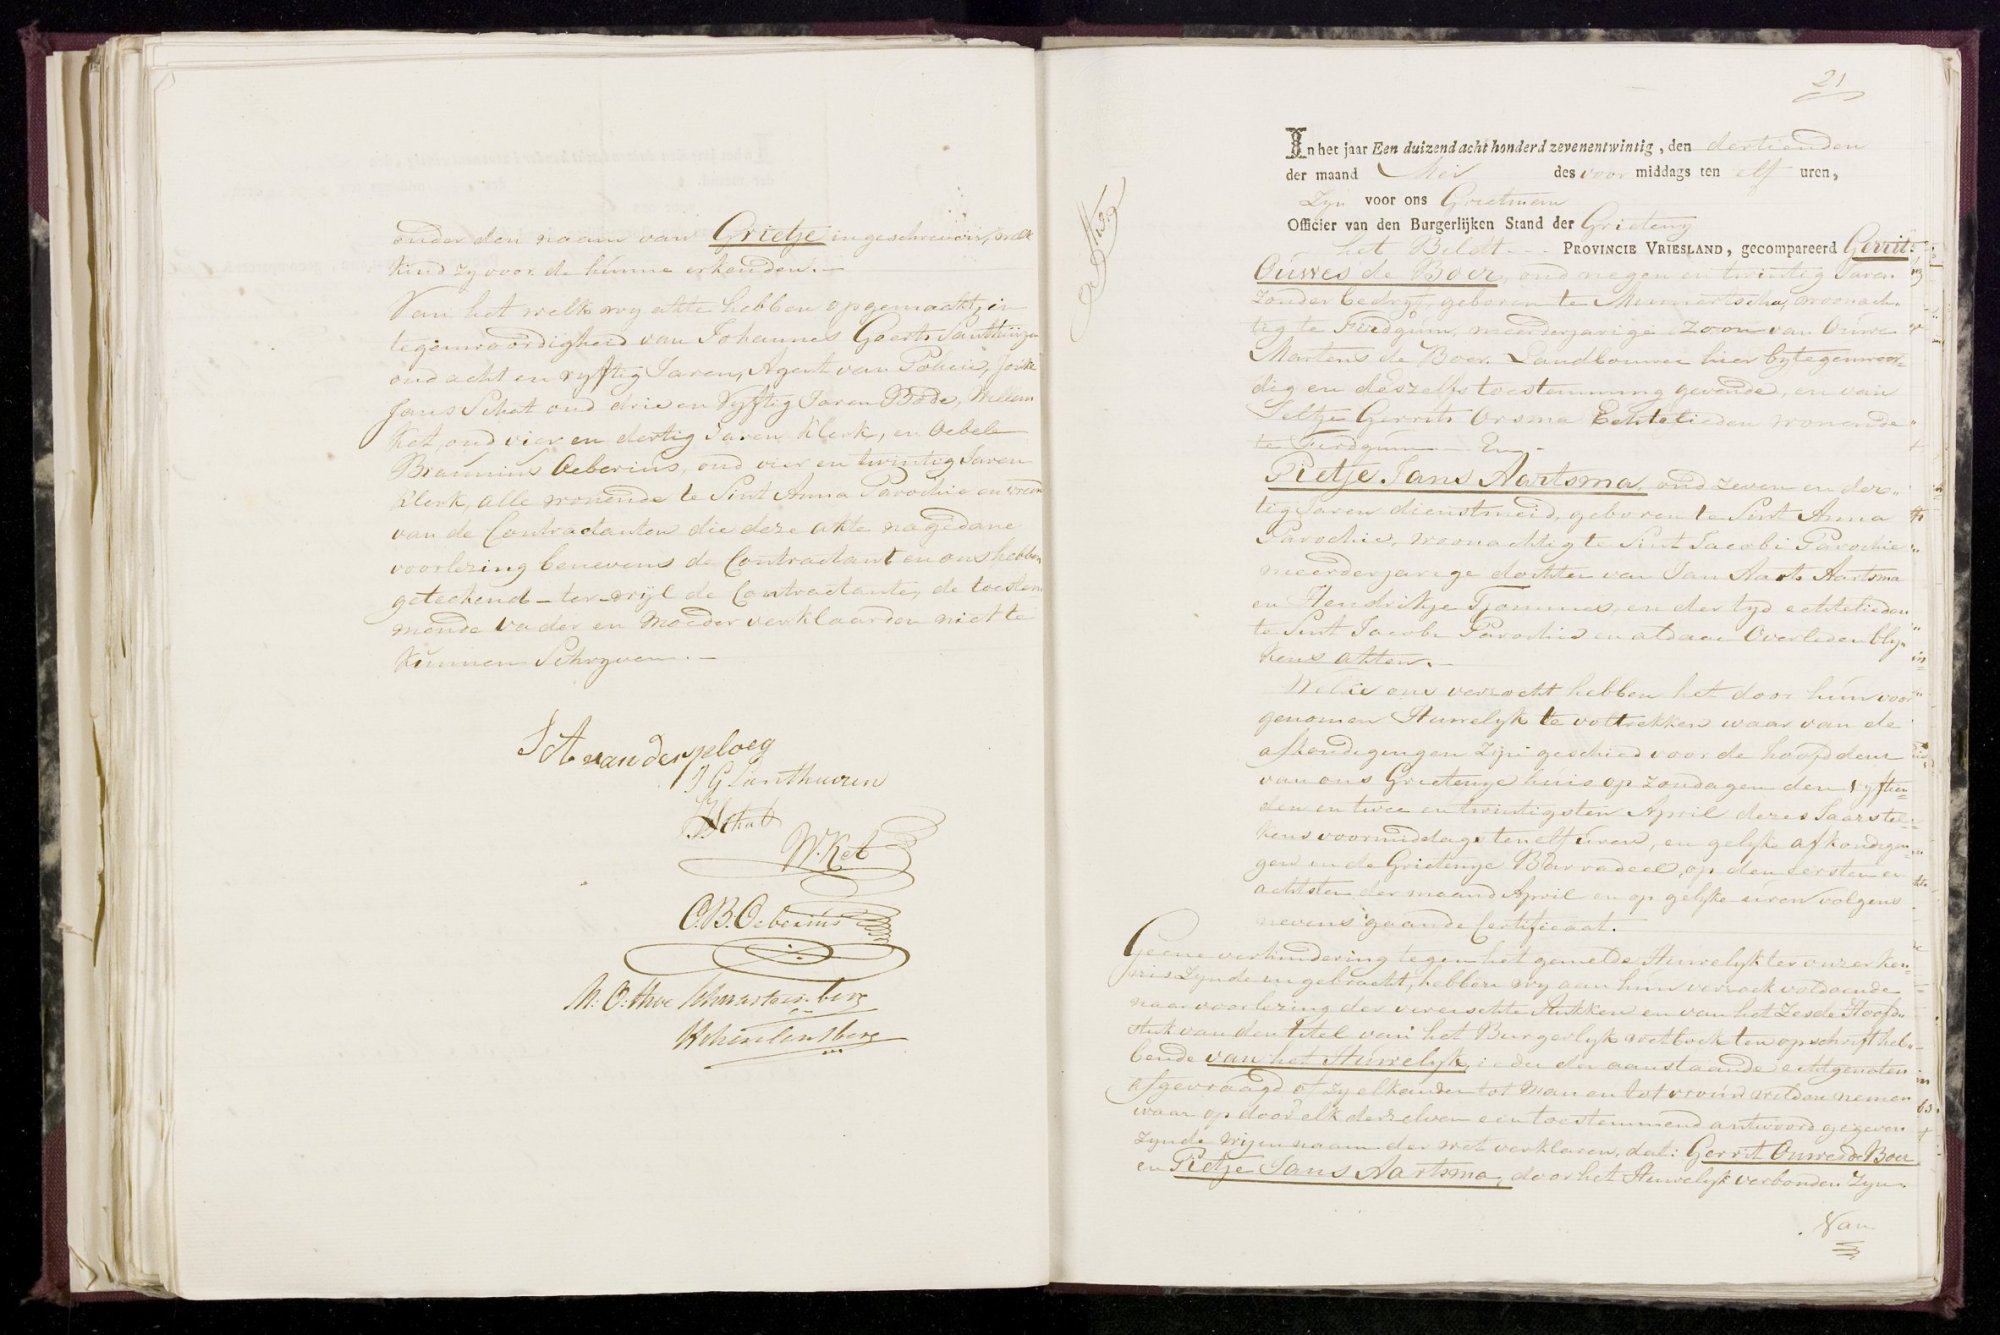 onder den naam van Grietje ingeschreven, welk
kind zy voor de hunne erkenden. —
Van het welk wy akte hebben opgemaakt, in
tegenwoordigheid van Johannes Goerts Santhuizen
oud acht en vyftig Jaren, Agent van Policie,
Jans Schat oud drie en Vyftig Jaren Bode, Willem
Ket, oud vier en dertig Jaren Klerk, en Oebele
Braunius Oeberius, oud vier en twintig Jaren
Klerk, alle wonende te Sint Anna Parochie
van de Contractanten die deze akte na gedane
voorlezing benevens de Contractant en ons hebben
getekend — terwijl de Contractante, de toestem
mende vader en moeder verklaarden niet te
kunnen Schryven. —
J A van der ploeg
J G Santhuizen
Schat
W. Ket
O. B. Oeberius
21
In het jaar Een duizend acht honderd zevenentwintig, den dertienden
der maand Mei des voor middags ten elf uren,
Zyn voor ons Grietman
Officier van den Burgerlijken Stand der Grieteny
het Bildt — PROVINCIE VRIESLAND, gecompareerd Gerrit
Ouwes de Boer, oud negen en twintig Jaren
zonder bedryf, geboren te Minnertscha, woonach-
tig te Firdgum, meerderjarige Zoon van Ouwe
Martens de Boer Landbouwer hier by tegenwoor-
dig en deszelfs toestemming gevende, en van
Gerrits Orsma Echtelieden wonende
te Firdgum — En —
Pietje Jans Aartsma, oud zeven en der-
tig Jaren dienstmeid, geboren te Sint Anna
Parochie, woonachtig te Sint Jacobi Parochie
meerderjarige dochter van Jan Aarts Aartsma
en Hendrikje Tjommes, en der tyd echtelieden
te Sint Jacobi Parochie en aldaar Overleden bly-
kens akten. —
Welke ons verzocht hebben het door hun voor
genomen Huwelyk te voltrekken waar van de
afkondigingen zijn geschied voor de hoofddeur
van ons Grietenye huis op Zondagen den vyftien-
den en twee en twintigsten April dezes Jaars tel-
kens voormiddags ten elf uren, en gelyke afkondigin-
gen in de Grietenye Barradeel, op den eersten en
achtsten der maand April en op gelyke uren volgens
nevens gaande Certificaat.
Geene verhindering tegen het gemelde Huwelyk ter onzer ken-
nis zynde ingebracht, hebben wy aan hun verzoek voldoende
naar voorlezing der vereischte stukken en van het Zesde Hoofd-
stuk van den titel van het Burgerlyk wetboek ten opschrift heb-
bende van het Huwelyk, ieder der aanstaande echtgenoten
afgevraagd of zy elkander tot Man en tot vrouw wilden nemen
waar op door elk derzelven een toestemmend antwoord gegeven
zynde wy in naam der wet verklaren, dat: Gerrit Ouwes de Boer
en Pietje Jans Aartsma, door het Huwelyk verbonden Zyn.
Van